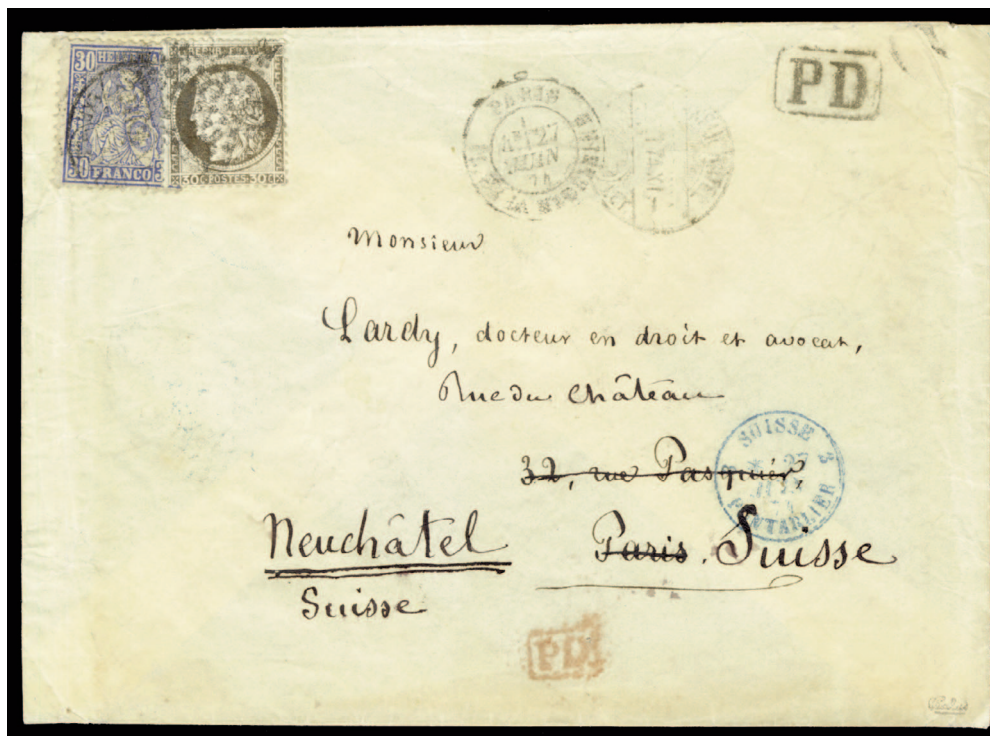 30 HELVETIA
30 FRANCO 3
REPUB. FRANC.
30 C. POSTES. 30 C.
PARIS
27
JUIN
PD
Monsieur
Lardy, docteur en droit et avocat,
Rue du Château
32, rue Pasquier,
3 SUISSE 3
27
PONTARLIER
Neuchâtel Paris. Suisse
Suisse
PD